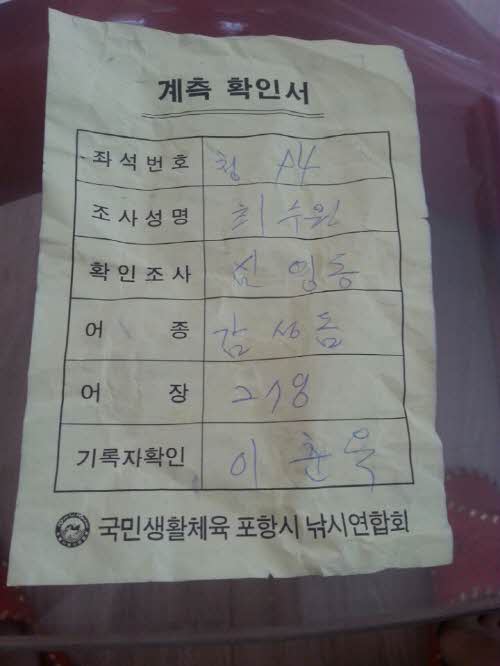 계측 확인서
좌석번호 청 A4
조사성명 최수원
확인조사 영동
어 종 감성돔
어 장
기록자확인 이춘옥
국민생활체육 포항시 낚시연합회